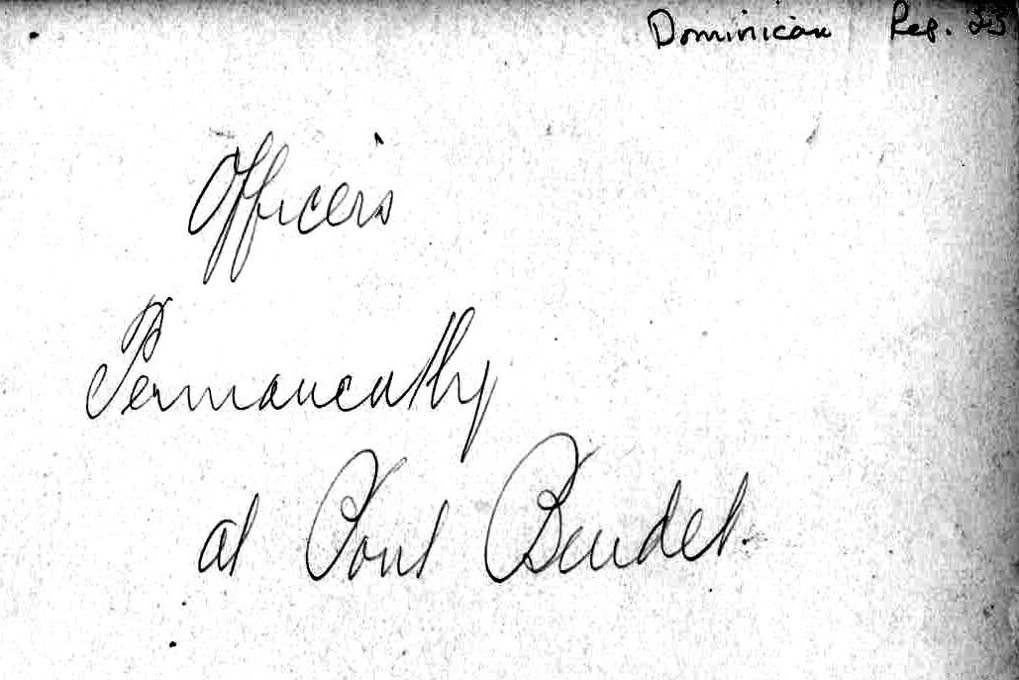 Dominican Rep. 25
Officers
Permanently
at Pont Beudet.